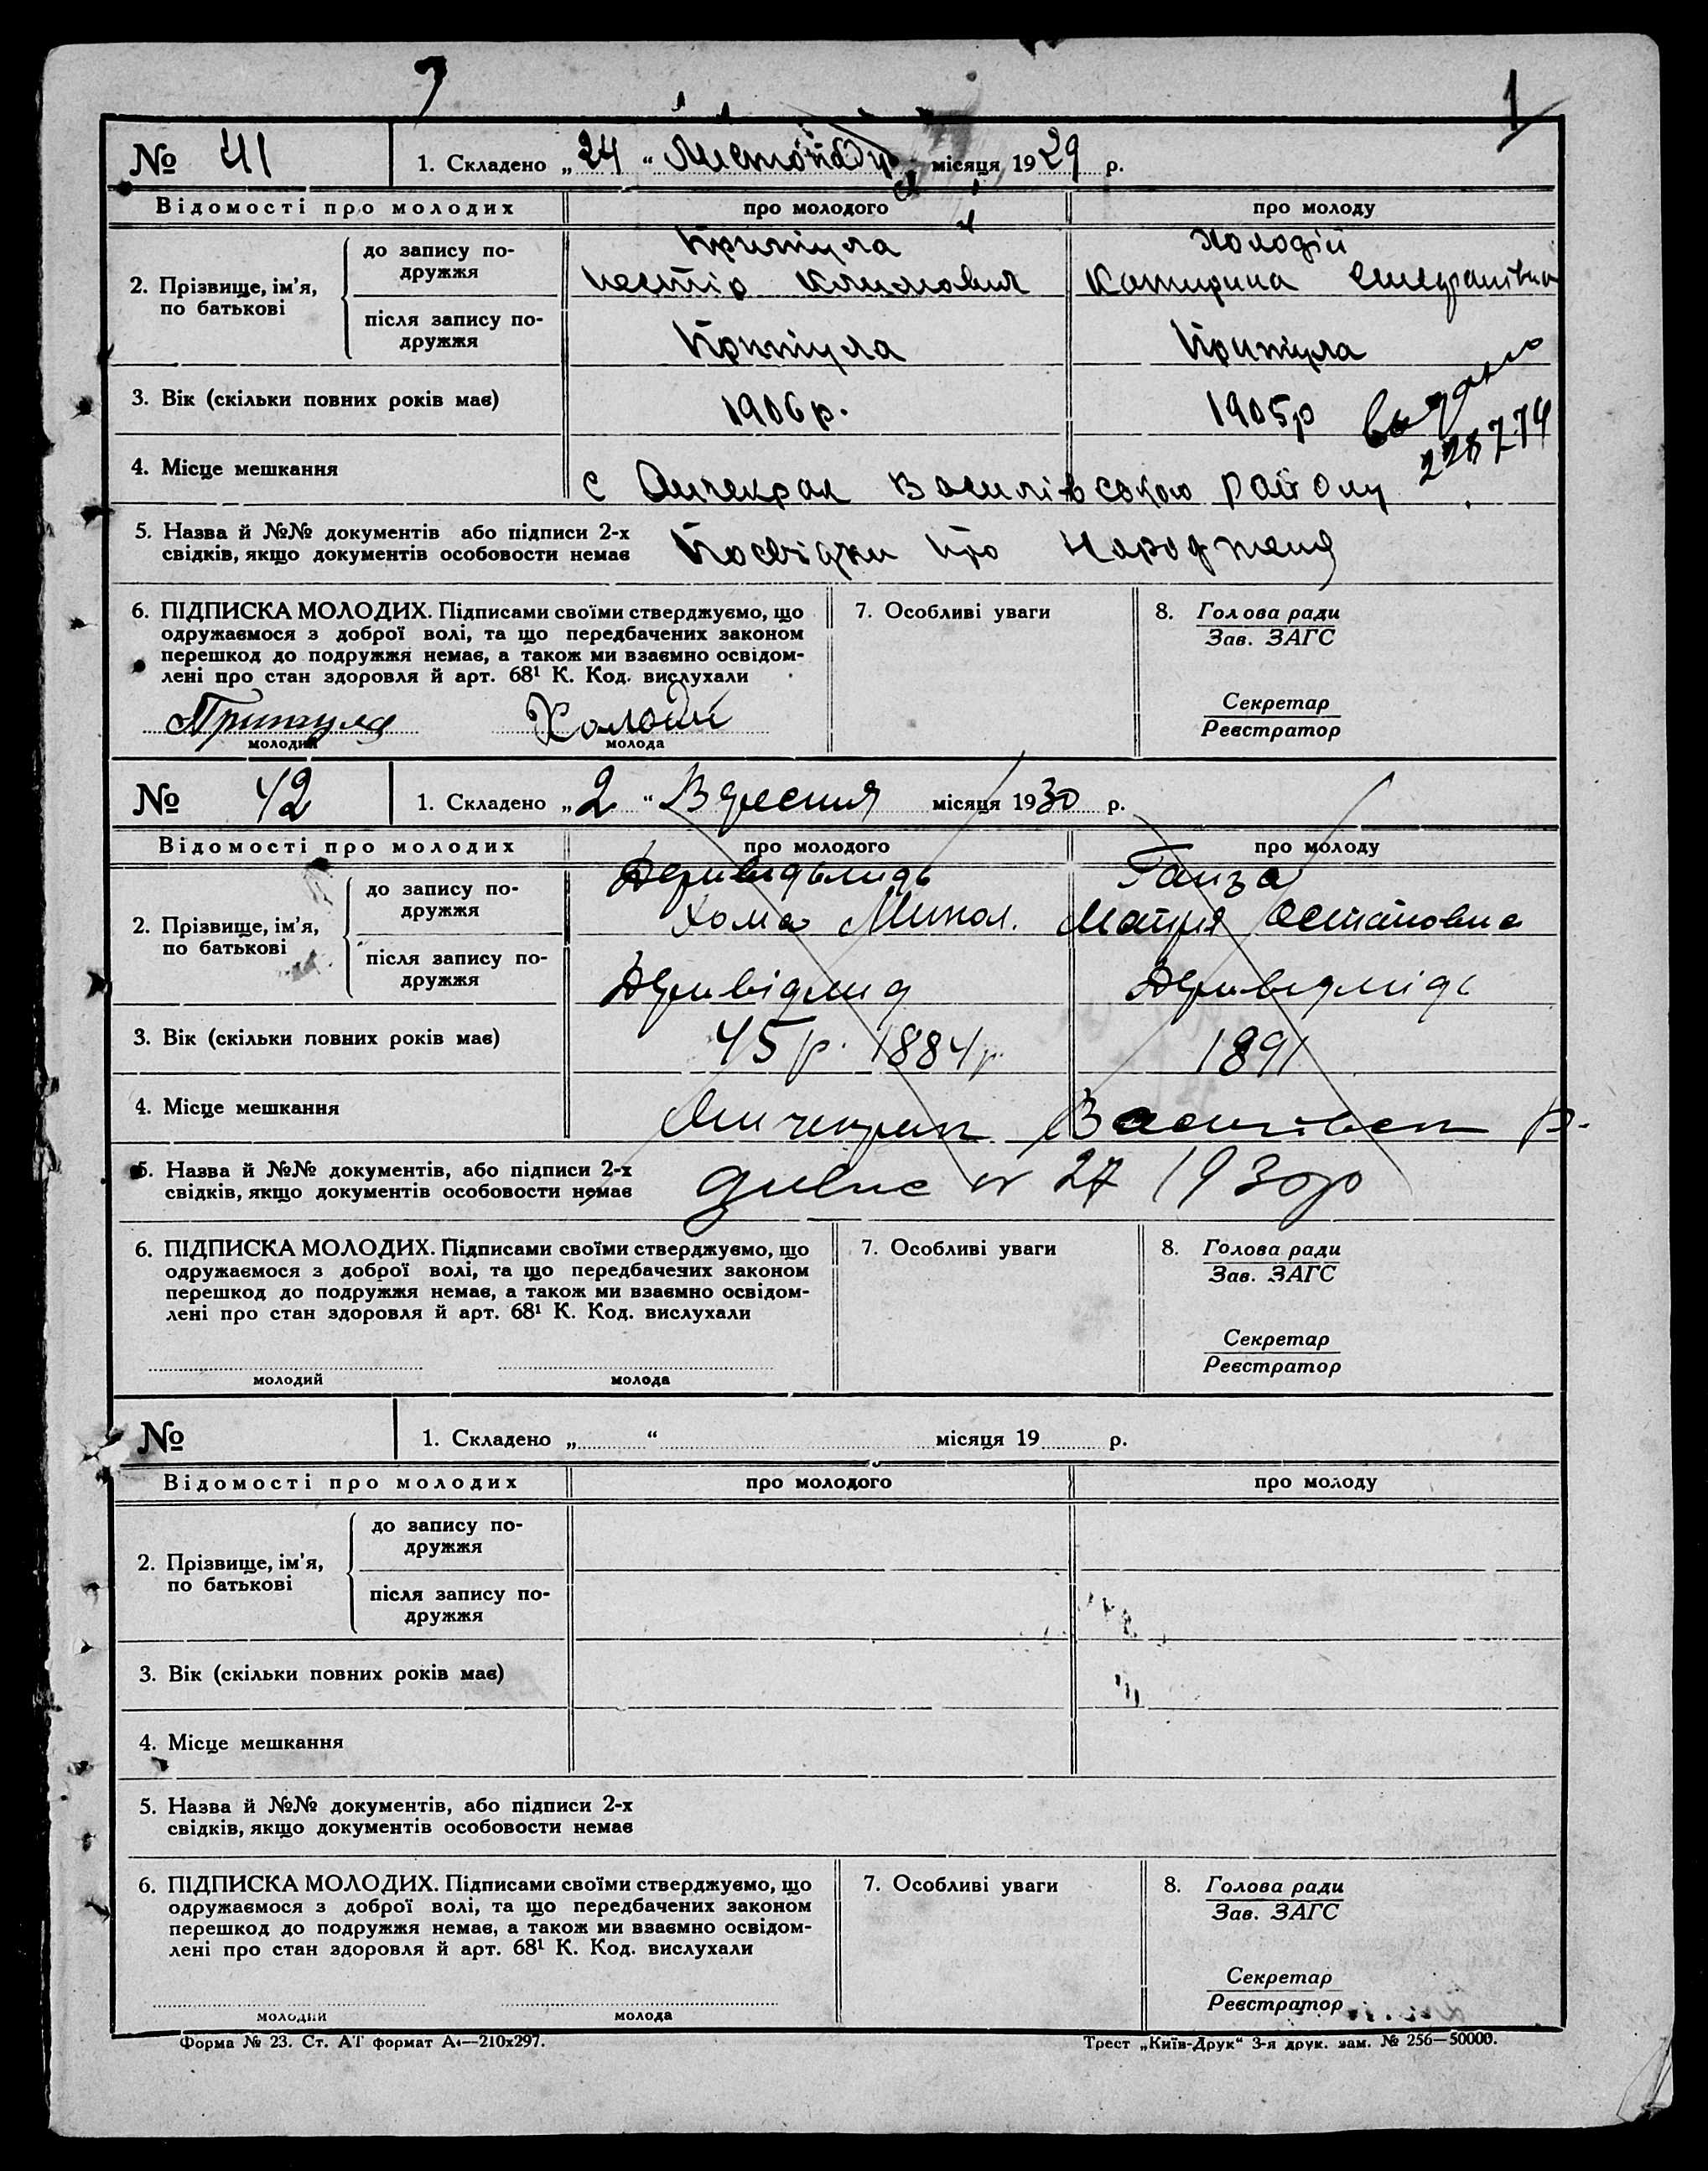 1
№ 41 1. Складено „24“ Листопаду місяця 1929 р.
Відомості про молодих про молодого про молоду
2. Прізвище, ім’я, по батькові
до запису подружжя
Притула Холодій
Нестір Климович Катирина
після запису подружжя
Притула Притула
3. Вік (скільки повних років має) 1906 р. 1905р
видано
228774
4. Місце мешкання
с Янчекрак Василівського району
5. Назва й №№ документів або підписи 2-х
свідків, якщо документів особовости немає Посвідки про народженя
6. ПІДПИСКА МОЛОДИХ. Підписами своїми стверджуємо, що
одружаємося з доброї волі, та що передбачених законом
перешкод до подружжя немає, а також ми взаємно освідом-
лені про стан здоровля й арт. 68¹ К. Код. вислухали
Притула Холоди
молодий молода
7. Особливі уваги
8. Голова ради
Зав. ЗАГС
Секретар
Реєстратор
№ 42 1. Складено „2“ Вересня місяця 1930 р.
Відомості про молодих про молодого про молоду
2. Прізвище, ім’я, по батькові
до запису подружжя
Ганза
Хома Микол. Марія Остаповна
після запису подружжя
3. Вік (скільки повних років має) 45 р. 1884р 1891
4. Місце мешкання Янчекрак Василівськ р.
5. Назва й №№ документів, або підписи 2-х
свідків, якщо документів особовости немає 27 1930р
6. ПІДПИСКА МОЛОДИХ. Підписами своїми стверджуємо, що
одружаємося з доброї волі, та що передбачених законом
перешкод до подружжя немає, а також ми взаємно освідом-
лені про стан здоровля й арт. 68¹ К. Код. вислухали
молодий молода
7. Особливі уваги
8. Голова ради
Зав. ЗАГС
Секретар
Реєстратор
№ 1. Складено „ “ місяця 19 р.
Відомості про молодих про молодого про молоду
2. Прізвище, ім’я, по батькові
до запису подружжя
після запису подружжя
3. Вік (скільки повних років має)
4. Місце мешкання
5. Назва й №№ документів, або підписи 2-х
свідків, якщо документів особовости немає
6. ПІДПИСКА МОЛОДИХ. Підписами своїми стверджуємо, що
одружаємося з доброї волі, та що передбачених законом
перешкод до подружжя немає, а також ми взаємно освідом-
лені про стан здоровля й арт. 68¹ К. Код. вислухали
молодий молода
7. Особливі уваги
8. Голова ради
Зав. ЗАГС
Секретар
Реєстратор
Форма № 23. Ст. АТ формат А4—210x297. Трест „Київ-Друк“ 3-я друк. зам. № 256—50000.